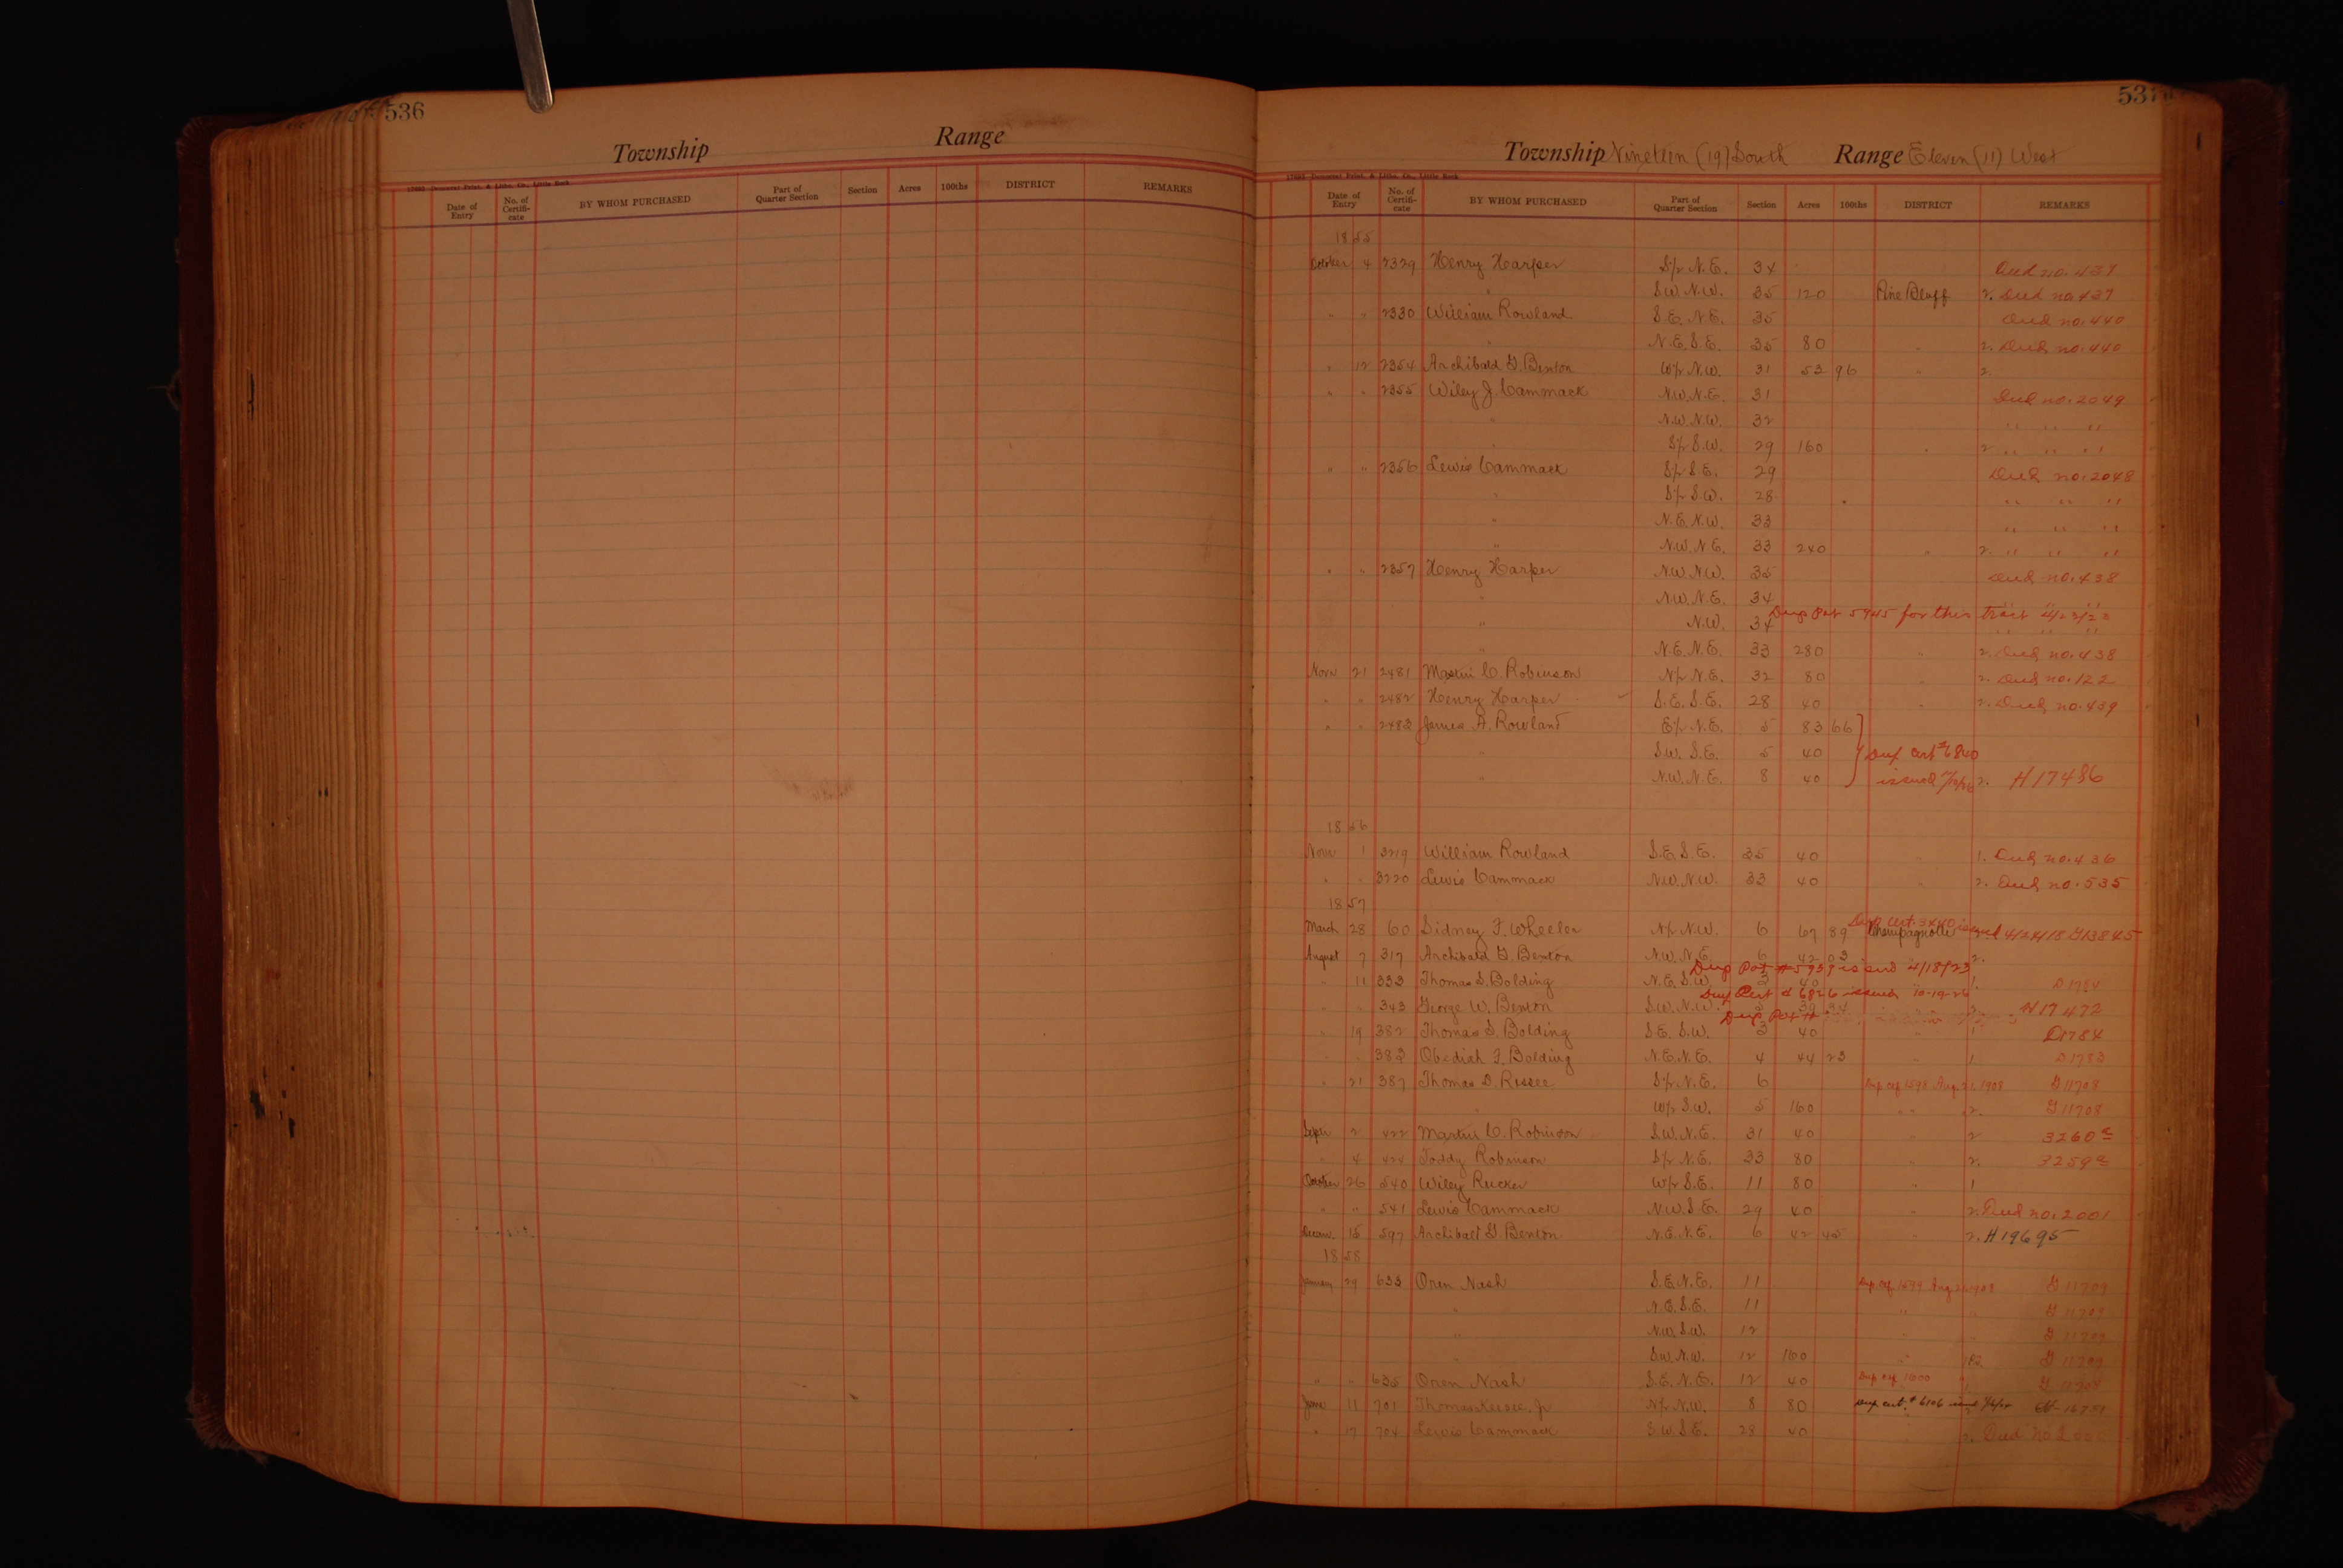 536
Township Range
17693 Democrat Print. & Litho. Co., Little Rock
Date of Entry No. of Certifi-cate BY WHOM PURCHASED Part of Quarter Section Section Acres 100ths DISTRICT REMARKS
537
Township Nineteen (19) South Range Eleven (11) West
17693 Democrat Print. & Litho. Co., Little Rock
Date of Entry No. of Certifi-cate BY WHOM PURCHASED Part of Quarter Section Section Acres 100ths DISTRICT REMARKS
1855
October 4 2329 Henry Harper S½ N.E. 34 Deed no. 437
" S.W. N.W. 35 120 Pine Bluff 2. Deed no. 437
" " 2330 William Rowland S.E. N.E. 35 Deed no. 440
" N.E. S.E. 35 80 " 2. Deed no. 440
" 12 2354 Archibald G. Benton W½ N.W. 31 53 96 " 2.
" " 2355 Wiley J. Cammack N.W. N.E. 31 Deed no. 2049
" N.W. N.W. 32 " " "
" S½ S.W. 29 160 " 2 " " "
" " 2356 Lewis Cammack S½ S.E. 29 Deed no. 2048
" S½ S.W. 28 " " "
" N.E. N.W. 33 " " "
" N.W. N.E. 33 240 " 2. " " "
" " 2357 Henry Harper N.W. N.W. 35 Deed no. 438
" N.W. N.E. 34 " " "
Dup Pat 5945 for this tract 4/23/23
" N.W. 34 " " "
" N.E. N.E. 33 280 " 2. Deed no. 438
Novr 21 2481 Martin C. Robinson N½ N.E. 32 80 " 2. Deed no. 122
" " 2482 Henry Harper S.E. S.E. 28 40 " 2. Deed no. 439
" " 2483 James A. Rowland E½ N.E. 5 83 66
" S.W. S.E. 5 40 Dup Cert # 6840
" N.W. N.E. 8 40 issued 2. H17486
1856
Novr 1 3219 William Rowland S.E. S.E. 35 40 " 1. Deed no. 436
" " 3220 Lewis Cammack N.W. N.W. 33 40 " 2. Deed no. 535
1857
Dup Cert. 3440 issued 4/24/18 G13845
March 28 60 Sidney F. Wheeler N½ N.W. 6 67 89 Champagnolle
August 7 317 Archibald G. Benton N.W. N.E. 6 42 03 " 2.
Dup Pat # 5939 issued 4/18/23
" 11 333 Thomas S. Bolding N.E. S.W. 3 40 1. D1784
Dup Cert # 6826 issued 10-19-26
" " 343 George W. Benton S.W. N.W. 5 39 2. H17472
Dup Pat #
" 19 382 Thomas S. Bolding S.E. S.W. 3 40 " 1 D1784
" " 383 Obediah F. Bolding N.E. N.E. 4 44 23 " 1 D1783
" 21 387 Thomas D. S½ N.E. 6 Dup cf 1598 Aug 21, 1908 G11708
W½ S.W. 5 160 " " 2. G11708
Septr 2 422 Martin C. Robinson S.W. N.E. 31 40 " 2 3260
" 4 424 Toddy Robinson S½ N.E. 33 80 " 2. 3259
October 26 540 Wiley Rucker W½ S.E. 11 80 " 1
" " 541 Lewis Cammack N.W. S.E. 29 40 " 2. Deed no. 2001
15 597 Archibald G. Benton N.E. N.E. 6 42 45 " 2. H19695
1858
January 29 633 Oren Nash S.E. N.E. 11 Dup cf 1599 Aug 21, 1908 G11709
" N.E. S.E. 11 " " G11709
" N.W. S.W. 12 " " G11709
" S.W. N.W. 12 160 " G11709
" " 635 Oren Nash S.E. N.E. 12 40 Dup cf 1600
June 11 701 Thomas Jr N½ N.W. 8 80 Dup cert. # 6106
" 17 704 Lewis Cammack S.W. S.E. 28 40 2. Deed no